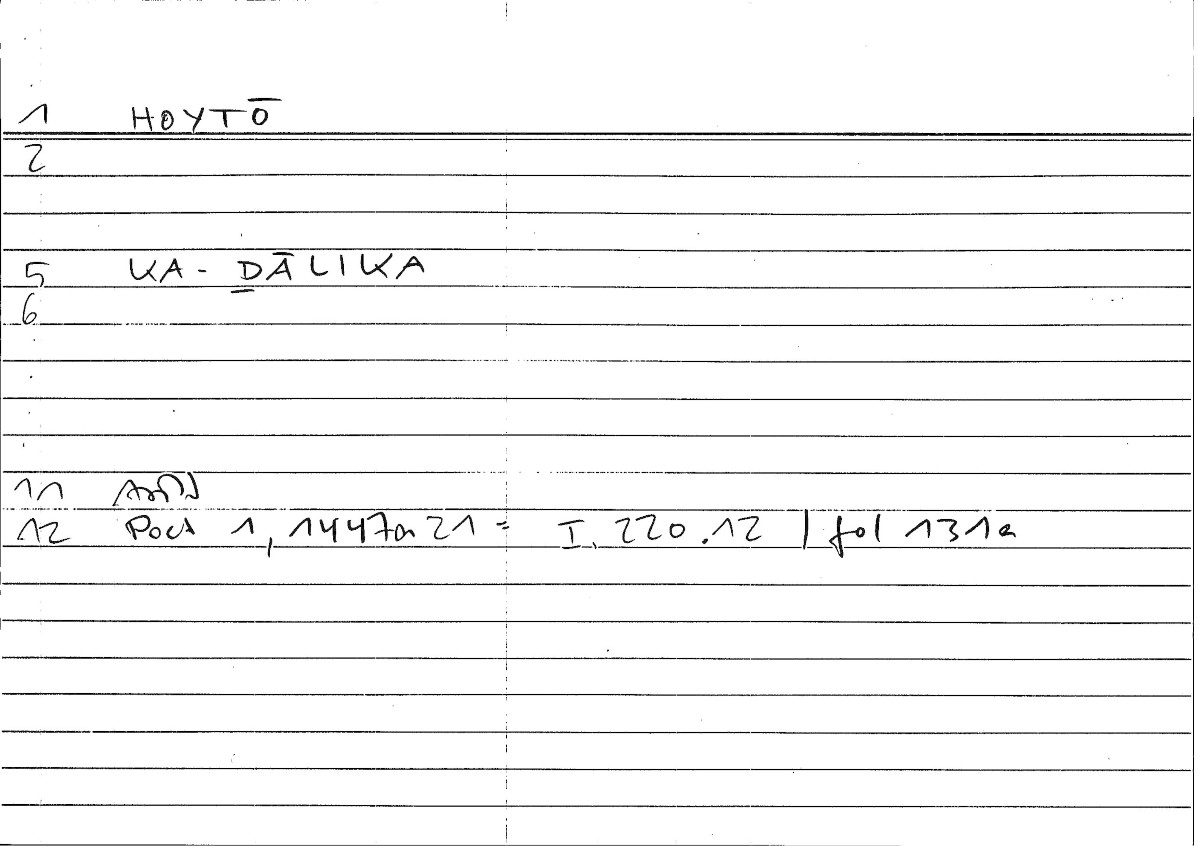 1 HOYTŌ
2
5 KA-ḎĀLIKA
6
11
12 Poet 1, 1447a 21 = I. 220.12 | fol 131a